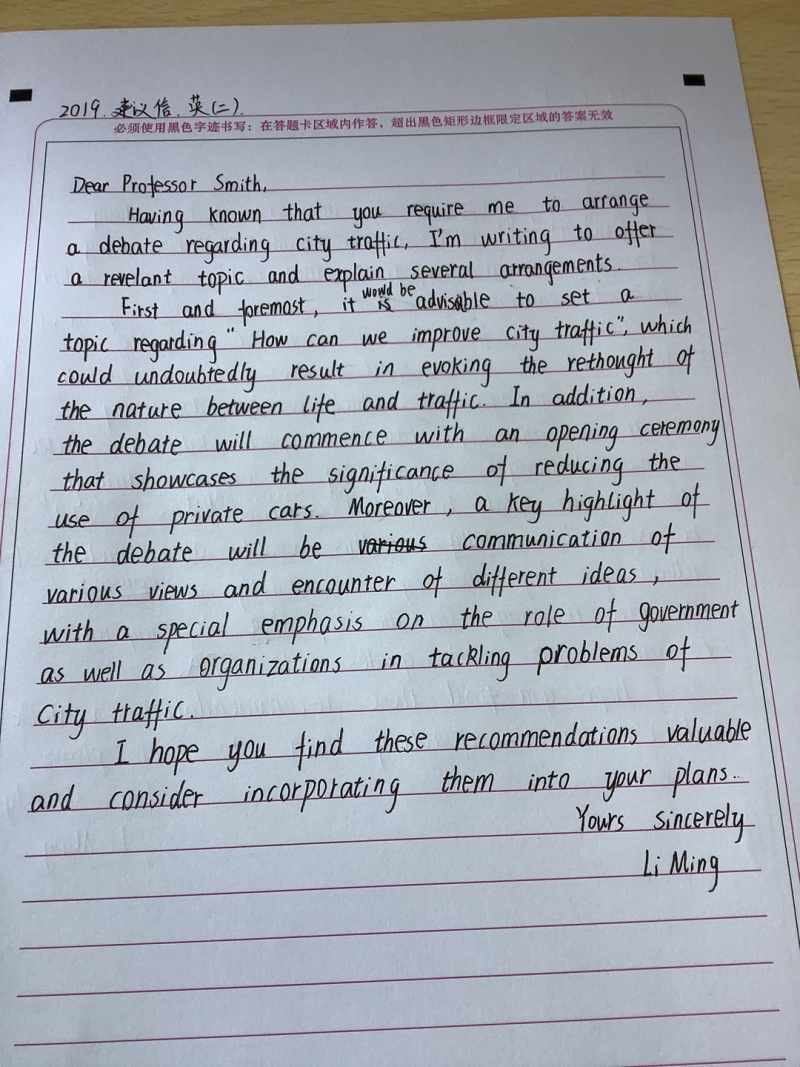 2019.建议信.英(二).
必须使用黑色字迹书写：在答题卡区域内作答，超出黑色矩形边框限定区域的答案无效
Dear Professor Smith,
Having known that you require me to arrange
a debate regarding city traffic, I'm writing to offer
a revelant topic and explain several arrangements.
First and foremost, it would be advisable to set a
topic regarding "How can we improve city traffic", which
could undoubtedly result in evoking the rethought of
the nature between life and traffic. In addition,
the debate will commence with an opening ceremony
that showcases the significance of reducing the
use of private cars. Moreover, a key highlight of
the debate will be various communication of
various views and encounter of different ideas,
with a special emphasis on the role of government
as well as organizations in tackling problems of
city traffic.
I hope you find these recommendations valuable
and consider incorporating them into your plans.
Yours sincerely
Li Ming